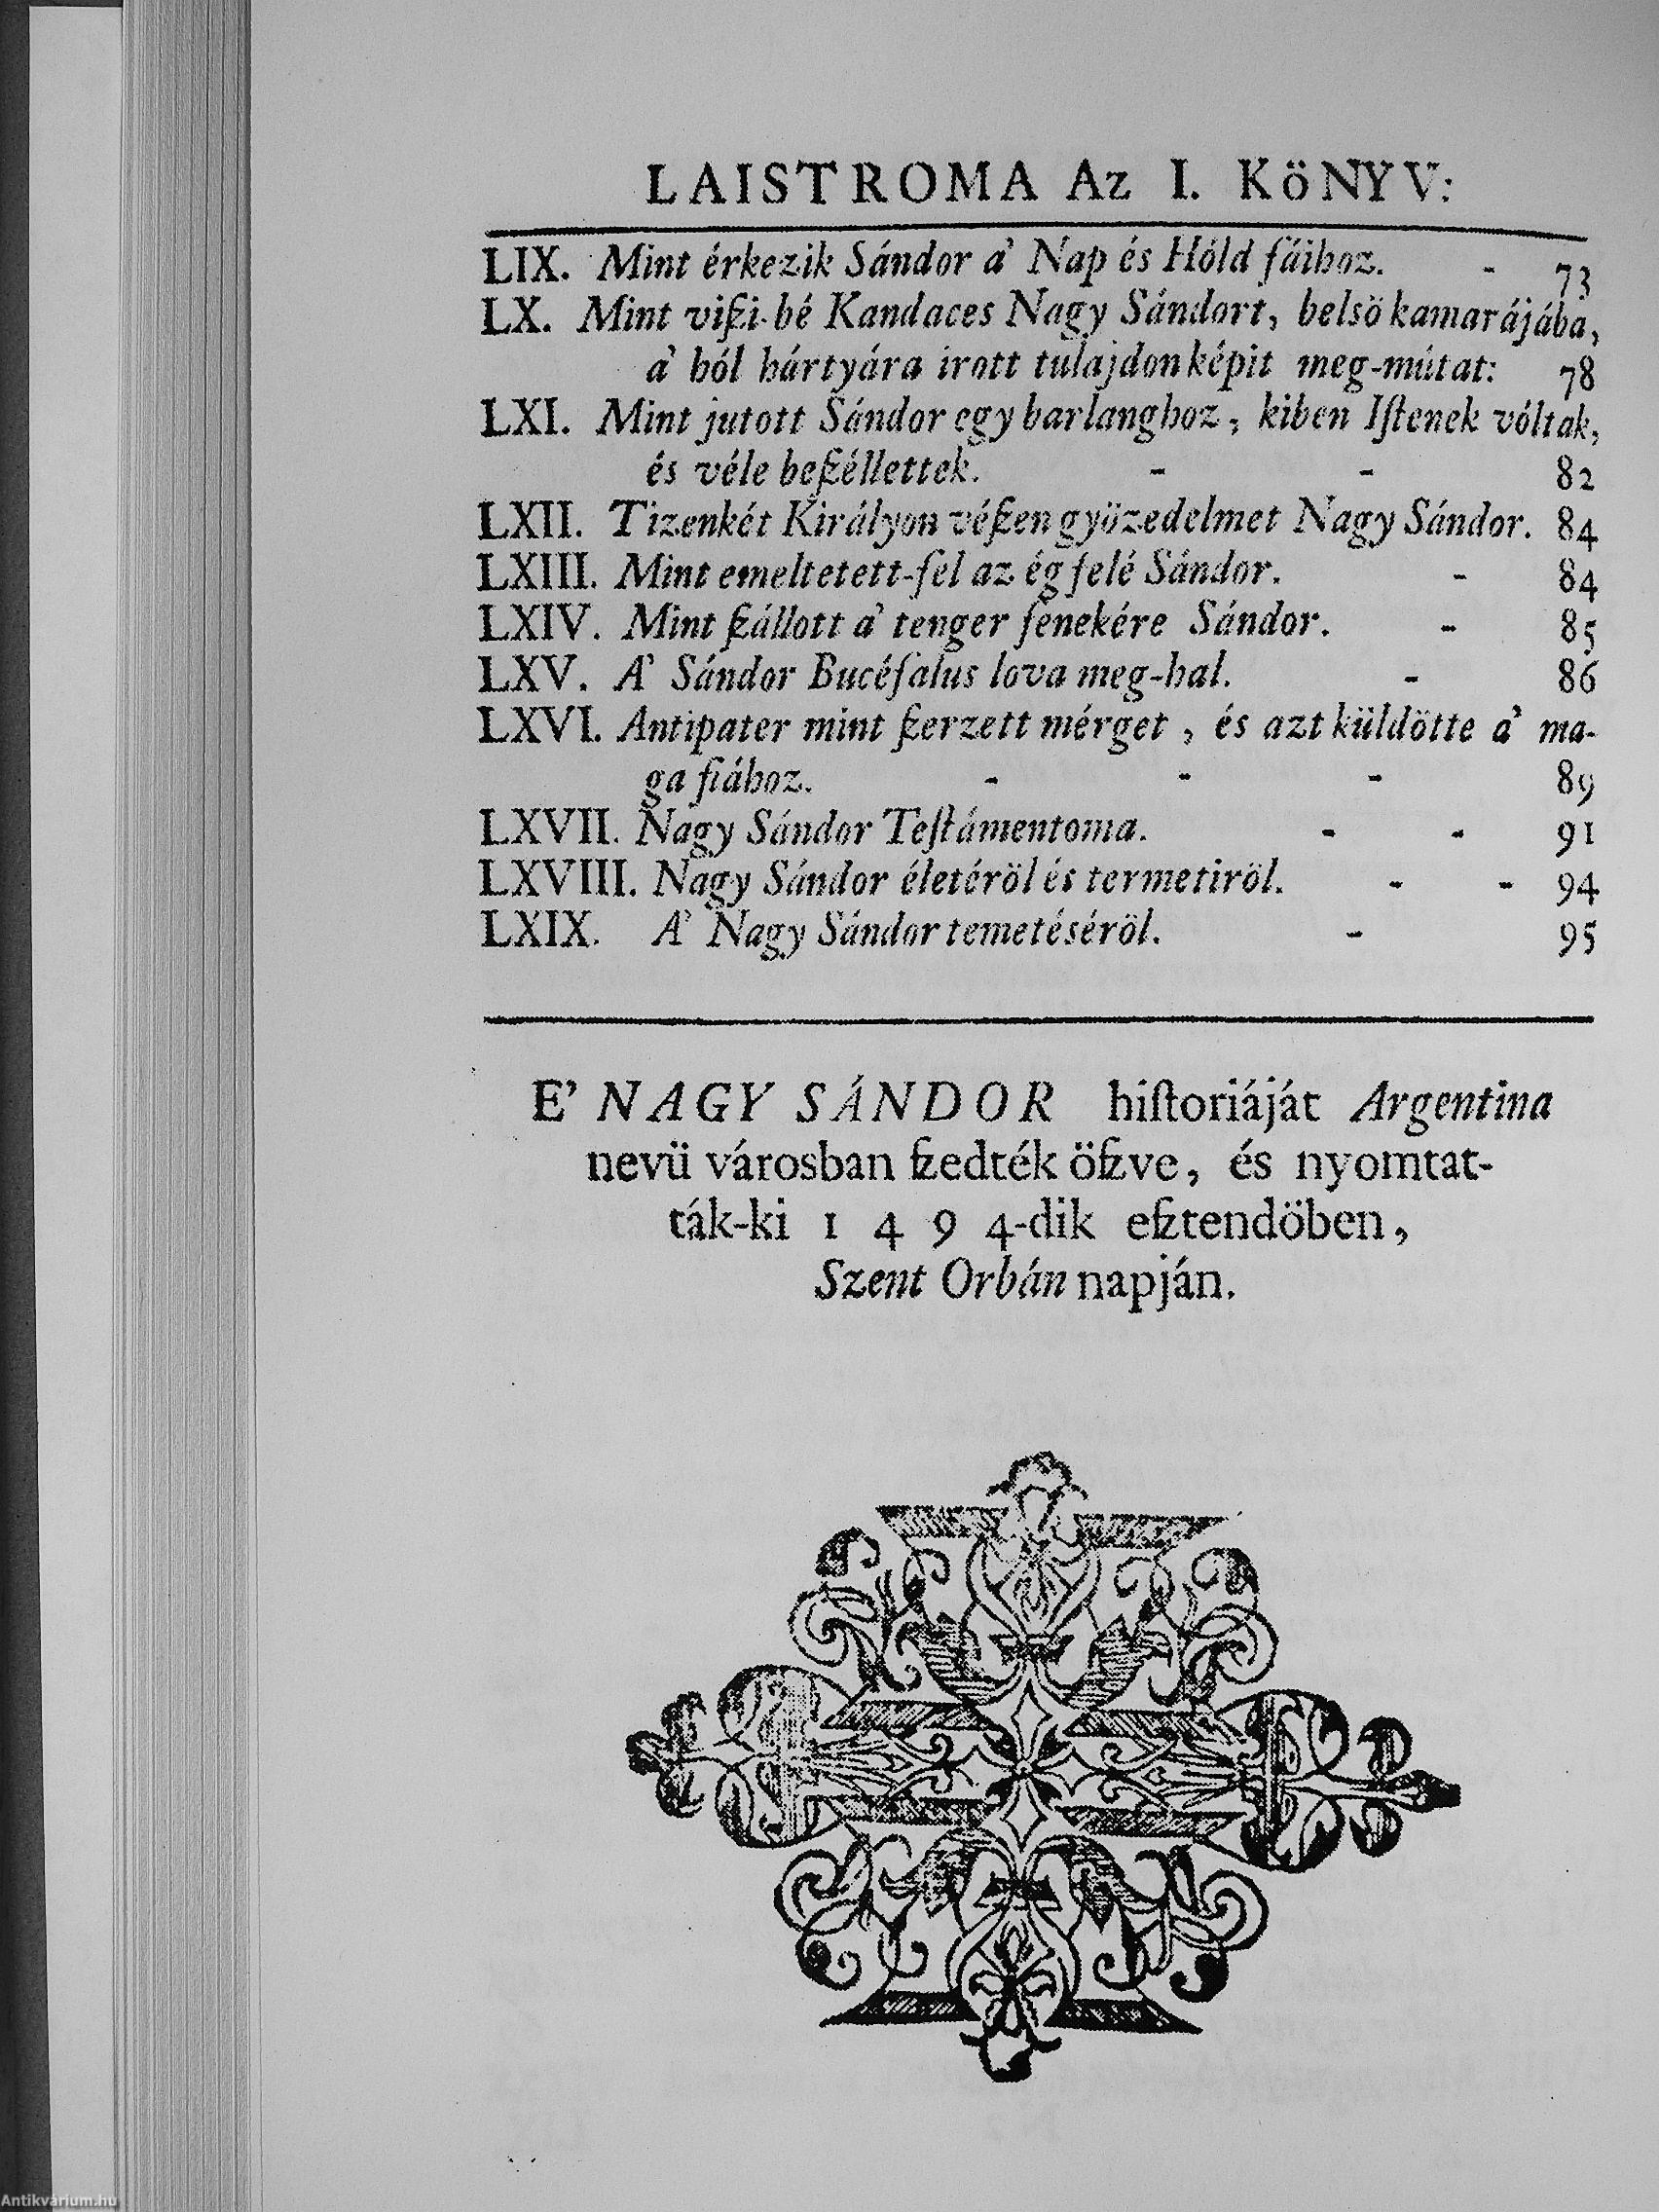 LAISTROMA Az I. KöNYV:
LIX. Mint érkezik Sándor a' Nap és Hóld fáihoz. - 73
LX. Mint viſzi-bé Kandaces Nagy Sándort, belsö kamarájába,
a' hól hártyára irott tulajdon képit meg-mútat: 78
LXI. Mint jutott Sándor egy barlanghoz, kiben Iſtenek vóltak,
és véle beſzéllettek. - - 82
LXII. Tizenkét Királyon véſzen gyözedelmet Nagy Sándor. 84
LXIII. Mint emeltetett-fel az ég felé Sándor. - 84
LXIV. Mint ſzállott a' tenger fenekére Sándor. - 85
LXV. A' Sándor Bucéfalus lova meg-hal. - 86
LXVI. Antipater mint ſzerzett mérget, és azt küldötte a' ma-
ga fiához. - - - 89
LXVII. Nagy Sándor Teſtámentoma. - - 91
LXVIII. Nagy Sándor életéröl és termetiröl. - - 94
LXIX. A' Nagy Sándor temetéséröl. - 95
E' NAGY SÁNDOR hiſtoriáját Argentina
nevü városban ſzedték öſzve, és nyomtat-
ták-ki 1 4 9 4-dik eſztendöben,
Szent Orbán napján.
Antikvárium.hu